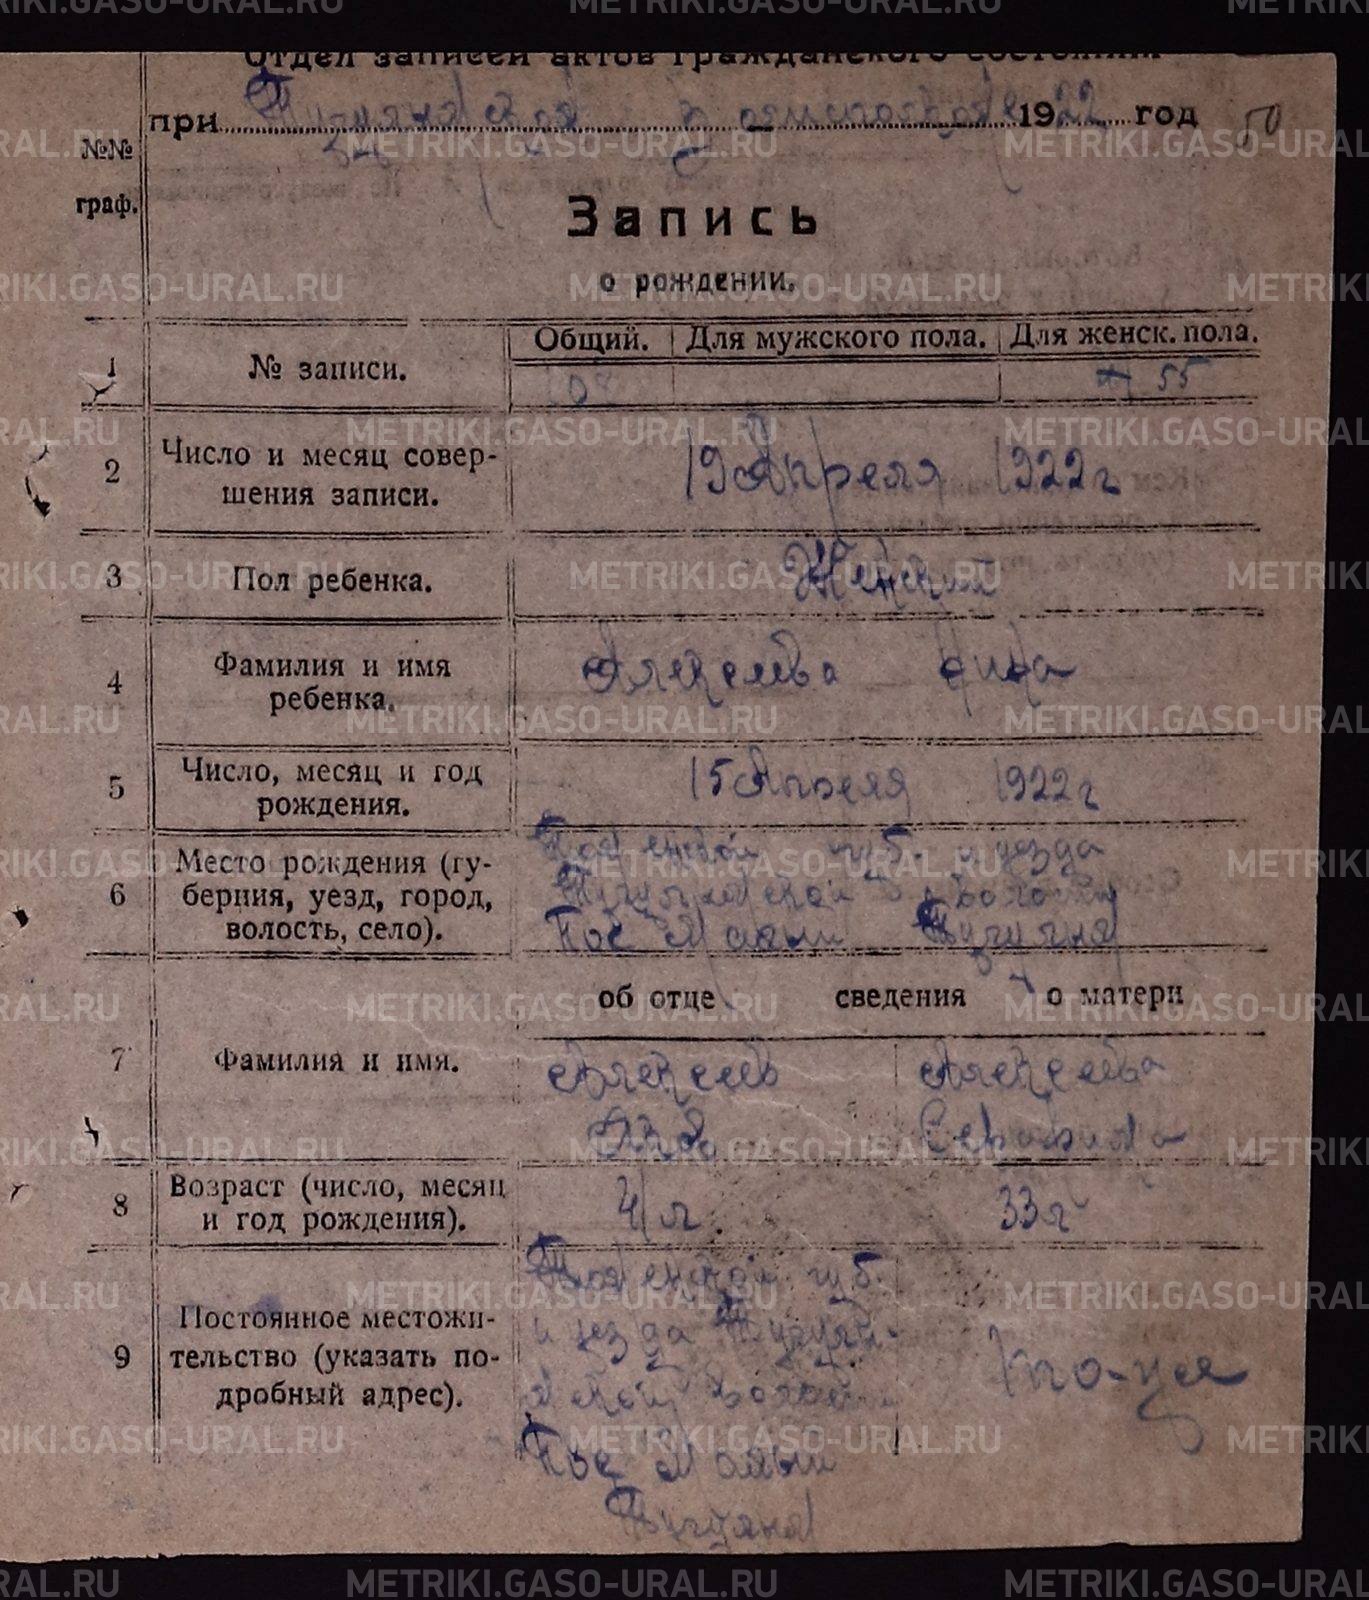 METRIKI.GASO-URAL.RU
Отдел записей актов гражданского состояния
при 1922 год 50
№№
граф.
Запись
о рождении.
Общий. Для мужского пола. Для женск. пола.
1 № записи. 108 55
2 Число и месяц совер-
шения записи.
19 Апреля 1922 г
3 Пол ребенка. Женский
4 Фамилия и имя
ребенка.
Алексеева
5 Число, месяц и год
рождения.
15 Апреля 1922 г
6 Место рождения (гу-
берния, уезд, город,
волость, село).
губ. и уезда
волости
Пос Малый
об отце сведения о матери
7 Фамилия и имя.
Алексеев Алексеева
Серафима
8 Возраст (число, месяц
и год рождения).
41 л 33 г
9 Постоянное местожи-
тельство (указать по-
дробный адрес).
губ.
и уезда
Пос Малый